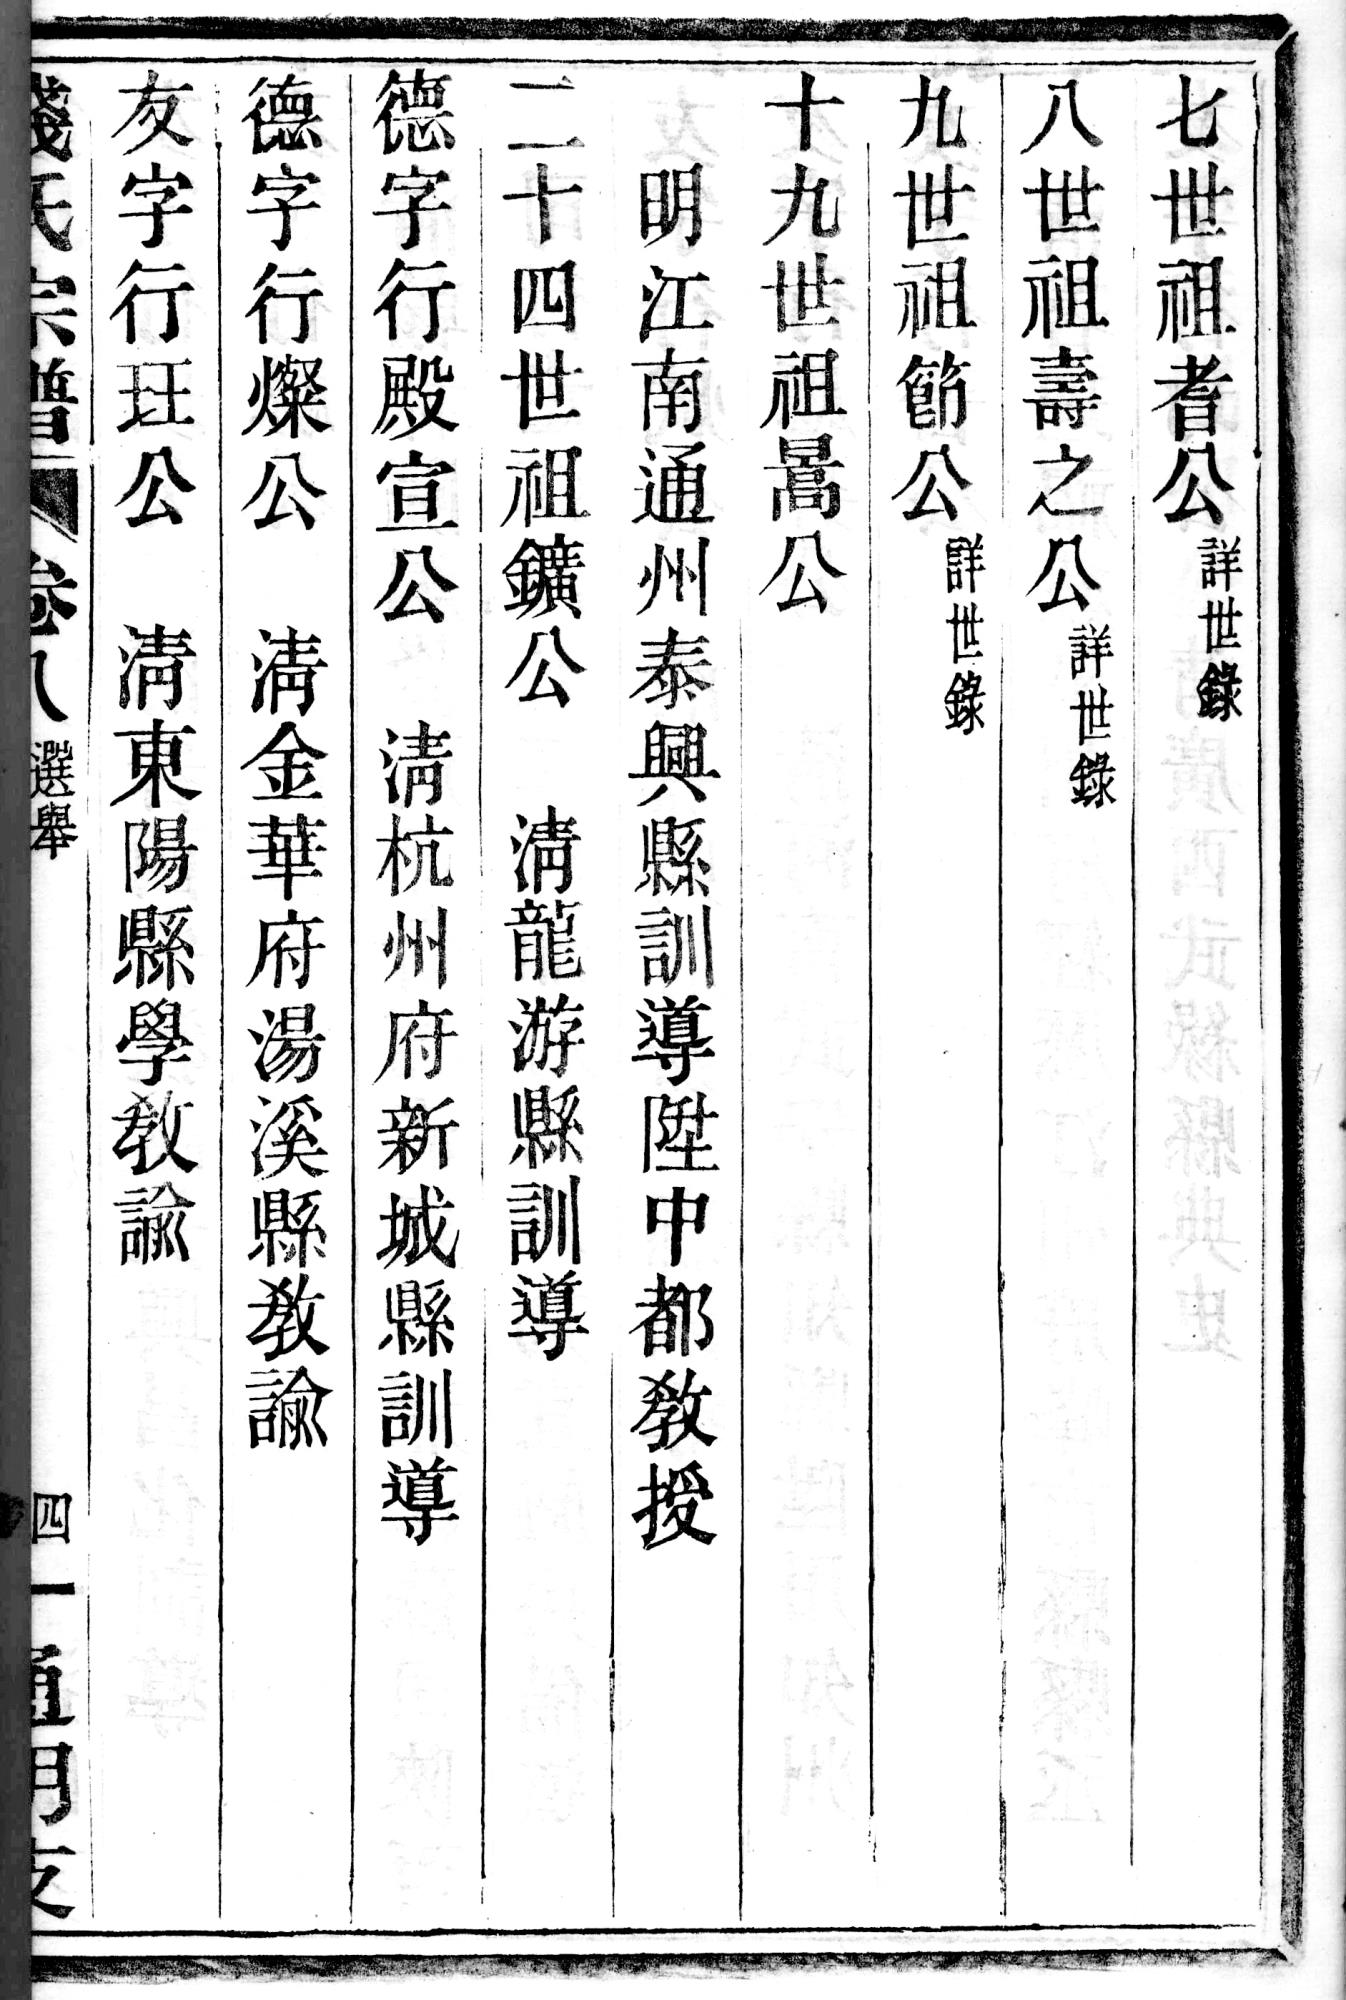 七世祖耆公詳世錄
八世祖壽之公詳世錄
九世祖節公詳世錄
十九世祖暠公
明江南通州泰興縣訓導陞中都教授
二十四世祖鑛公 淸龍游縣訓導
德字行殿宣公 淸杭州府新城縣訓導
德字行燦公 淸金華府湯溪縣教諭
友字行玨公 淸東陽縣學教諭
氏宗譜 卷八 選舉 四 通明支